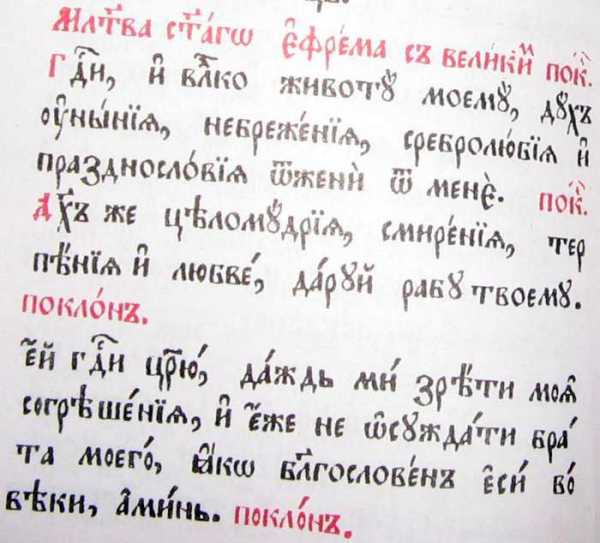 Мл҃тва ст҃а́гѡ є҆фре́ма съ вели́кїй пок.
Гдⷭ҇и, и҆ влⷣко животꙋ̀ моемꙋ̀, дꙋ́хъ
оу҆ны́нїѧ, небреже́нїѧ, сребролю́бїѧ и҆
празднословїѧ ѿженѝ ѿ менє̀. пок.
Дх҃ъ же цѣломꙋ́дрїѧ, смире́нїѧ, тер
пѣ́нїѧ и҆ любве́, да́рꙋй рабꙋ̀ твоемꙋ.
покло́нъ.
є҆́й гдⷭ҇и цр҃ю́, да́ждь мѝ зрѣ́ти моѧ҆̀
согрѣше́нїѧ, и҆ є҆́же не ѡ҆сꙋжда́ти бра́
та моего́, ꙗ҆́кѡ бл҃гослове́нъ є҆сѝ во́
вѣ́ки, а҆ми́нь. покло́нъ.